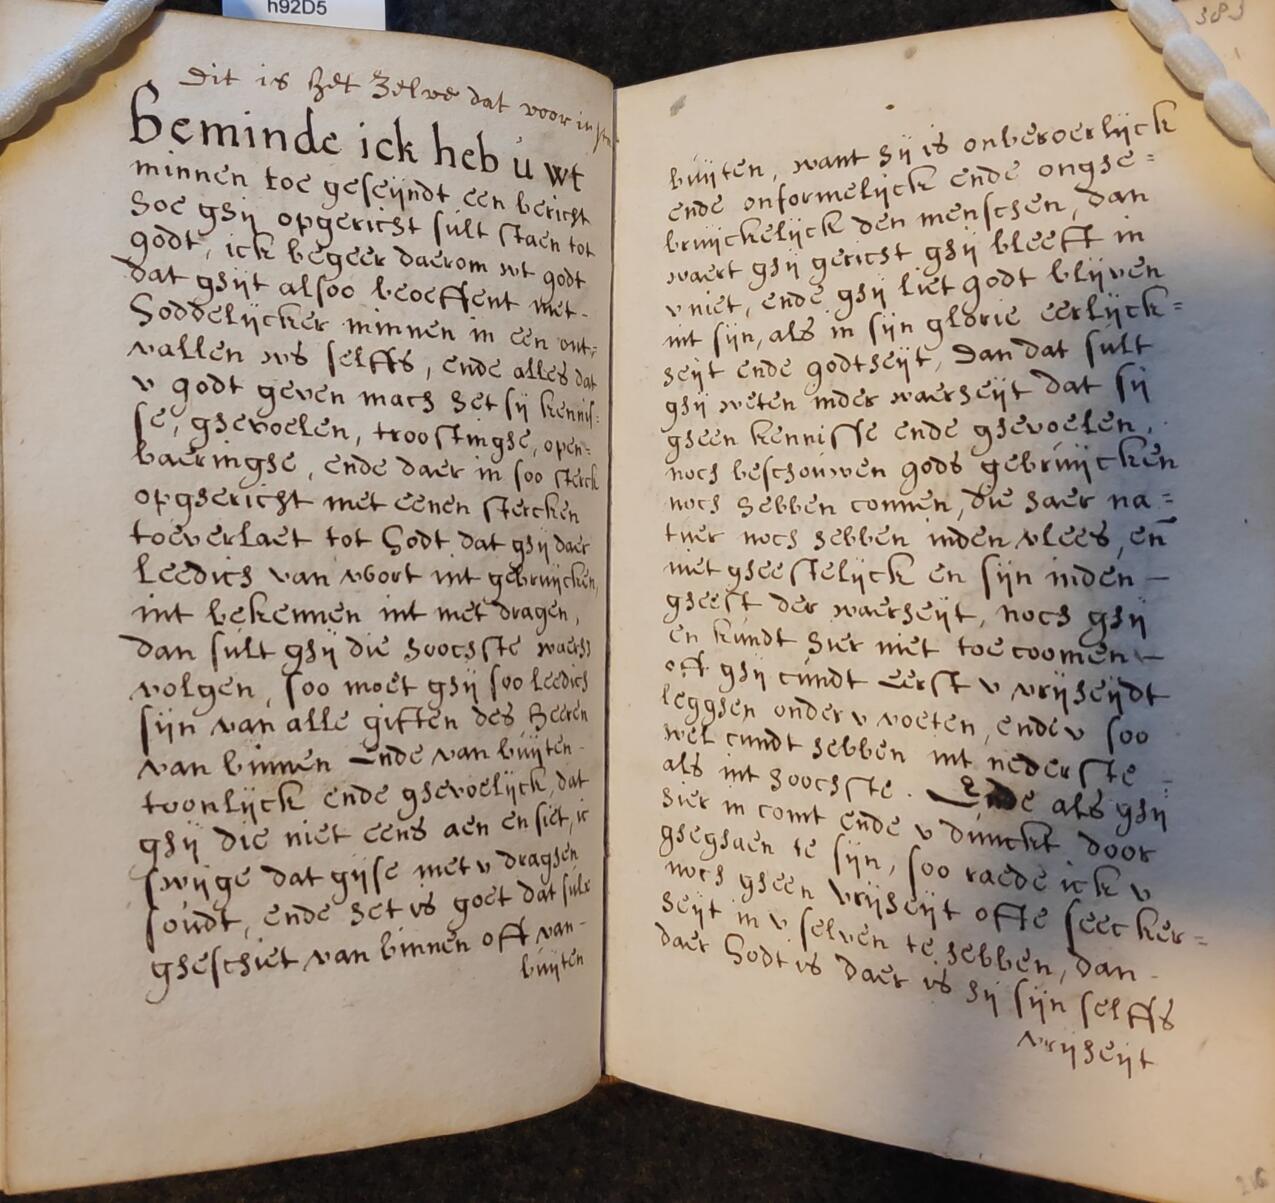 h92D5
Dit is het zelve dat voor in
Beminde ick heb u wt
minnen toe geseijndt een bericht
hoe ghij opgericht sult staen tot
godt, ick begeer daerom wt godt
dat ghijt alsoo beoeffent met-
Goddelijcker minnen in een ont=
vallen ws selffs, ende alles dat
v godt geven mach het sij kennis=
se, ghevoelen, troostinghe, open=
baeringhe, ende daer in soo sterck
opghericht met eenen stercken
toeverlaet tot Godt dat ghij daer
leedich van voort int gebruijcken,
int bekennen int met dragen,
dan sult ghij die hoochste waerh
volgen, soo moet ghij soo leedich
sijn van alle giften des Heeren
van binnen Ende van buijten-
toonlijck ende ghevoelijck, dat
ghij die niet eens aen en siet, ic
swijge dat gijse met v draghen
soudt, ende het is goet dat sulx
gheschiet van binnen oft van-
buijten
383
buijten, want hij is onberoerlijck
ende onformelijck ende onghe=
bruijckelijck den menschen, dan
waert ghij gericht ghij bleeft in
v niet, ende ghij liet godt blijven
int sijn, als in sijn glorie eerlijck=
heijt ende godtheijt, Dan dat sult
ghij weten inder waerheijt dat sij
gheen kennisse ende ghevoelen,
noch beschouwen gods gebruijcken
noch hebben connen, die haer na=
tuer noch hebben inden vlees, en
niet gheestelijck en sijn inden —
gheest der waerheijt, noch ghij
en kundt hier niet toe coomen —
oft ghij cundt eerst v vrijheijdt
legghen onder v voeten, ende v soo
wel cundt hebben int nederste
als int hoochste. Ende als ghij
hier in comt ende v dunckt door
gheghaen te sijn, soo raede ick v
noch gheen vrijheijt ofte seecker=
heijt in v selven te hebben, dan-
daer Godt is daer is hij sijn selffs
vrijheijt